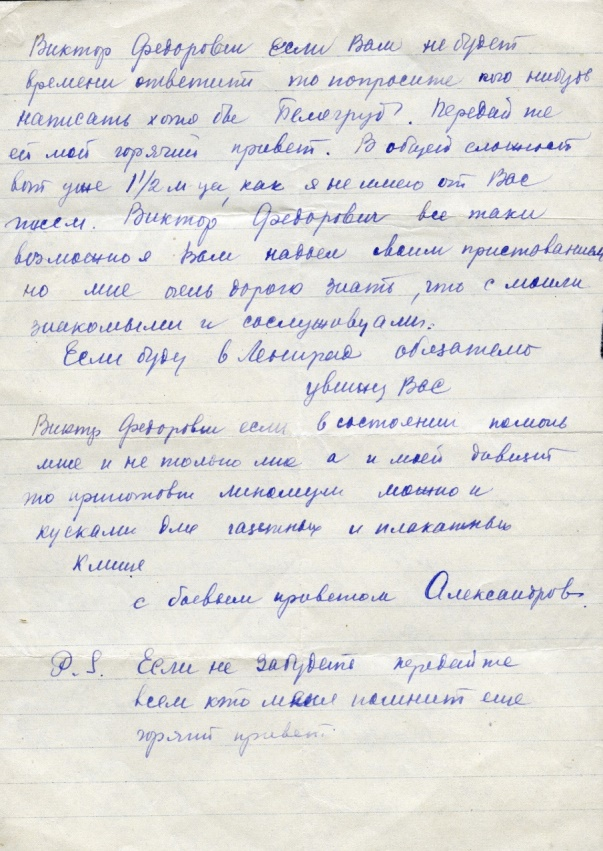 Виктор Федорович Если Вам не будет
времени ответить то попросите кого нибудь
написать хотя бы. Передай те
ей мой горячий привет. В общей сложност
вот уже 1 1/2 м ца, как я не имею от Вас
писем. Виктор Федорович все таки
возможно я Вам надоел своим пристованием
но мне очень дорого знать, что с моими
знакомыми и сослуживцами.
Если буду в Ленинград обязательно
увижу Вас
Виктор Федорович если в состоянии помочь
мне и не только мне а и моей дивизии
то приготовьте линолеум можно и
кусками для газетных и плакатных
клише
с боевым приветом Александров.
P.S. Если не забудете передайте
всем кто меня помнит еще
горячий привет.